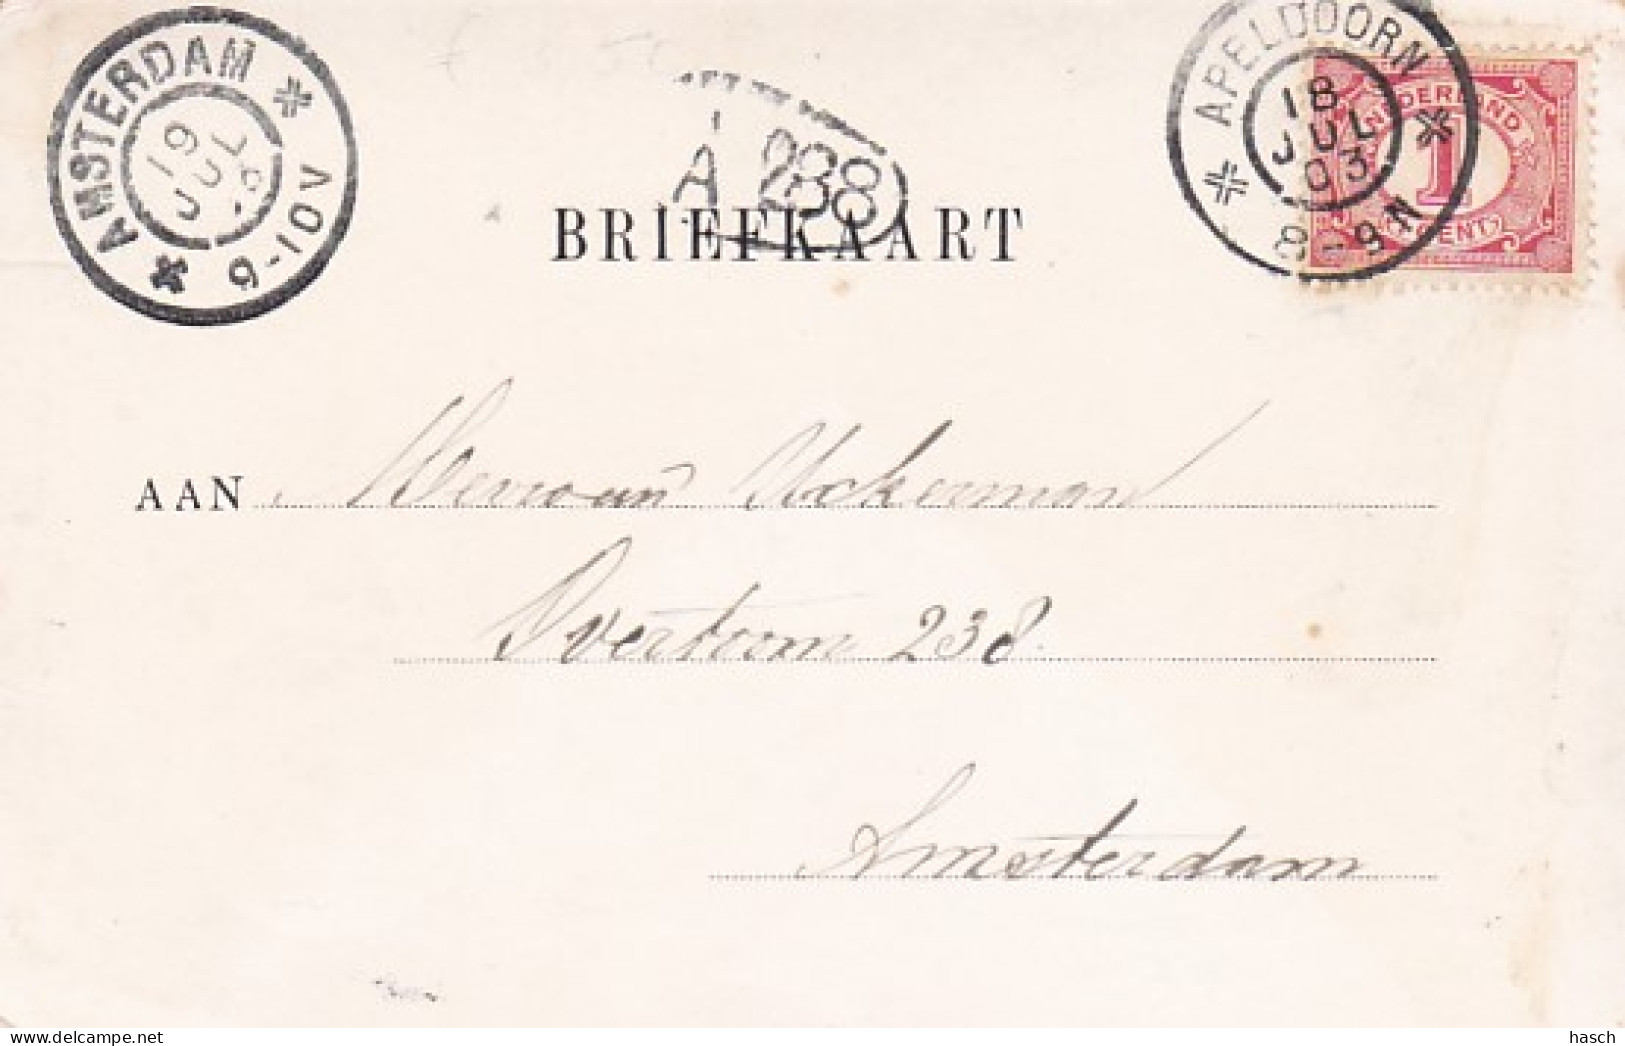 AMSTERDAM
19
JUL
9-10V
A 288
BRIEFKAART
APELDOORN
18
JUL
03
8-9N
NEDERLAND
1
CENT
AAN Mevrouw Ackerman
Overtoom 238.
Amsterdam
www.delcampe.net
hasch